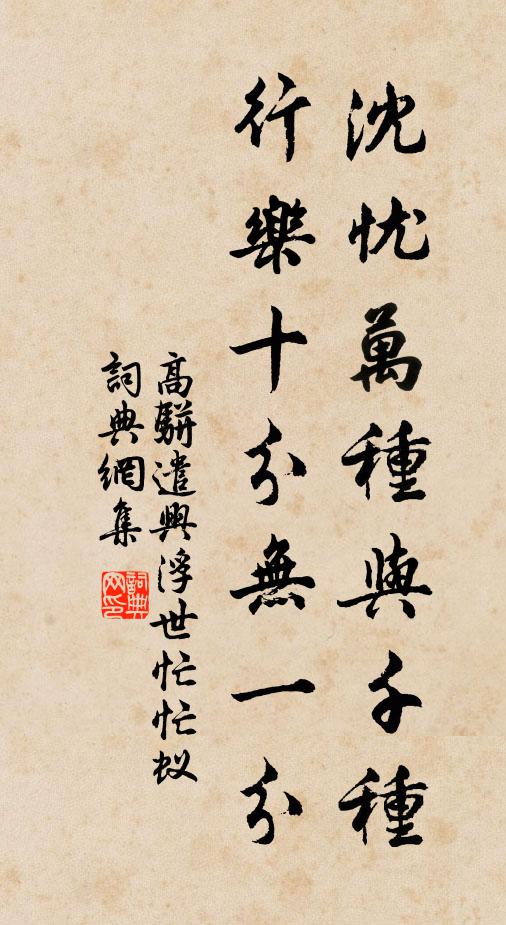 沈忧萬種與千種
行樂十分無一分
高駢遣興浮世忙忙蚁
詞典網集
詞典网印